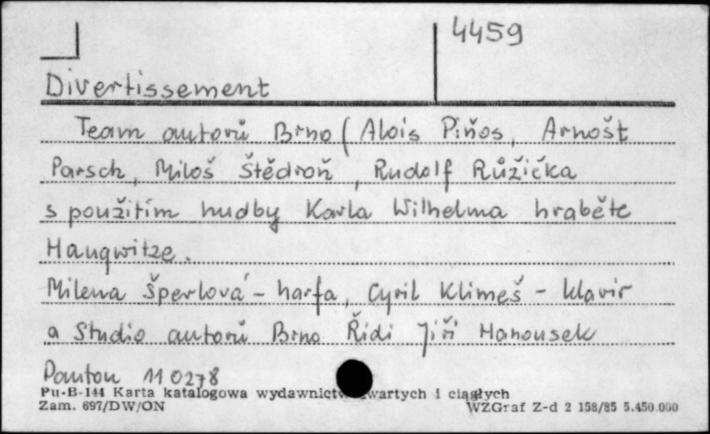 4459
Divertissement
Team autorů Brno (Alois Piňos, Arnošt
Parsch, Miloš Štědroň, Rudolf Růžička
s použitím hudby Karla Wilhelma hraběte
Haugwitze.
Milena Šperlová - harfa, Cyril Klimeš - klavír
a Studio autorů Brno Řídí Jiří Hanousek
Panton 11 0278
Pu-B-144 Karta katalogowa wydawnictw zwartych i ciągłych
Zam. 697/DW/ON WZGraf Z-d 2 158/85 5.450.000